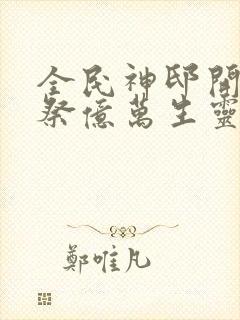 全民神邸開
祭億萬生靈
鄭唯凡